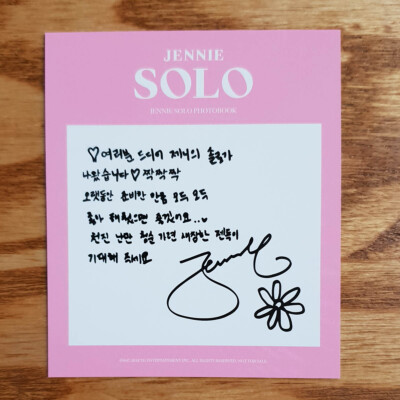 JENNIE
SOLO
JENNIE SOLO PHOTOBOOK
♡여러분 드디어 제니의 솔로가
나왔습니다♡ 짝짝짝
오랫동안 준비한 만큼 모두 모두
좋아해줬으면 좋겠어요..
천진 난만 청순 가련 새침한 젠득이
기대해 주세요
Jennie